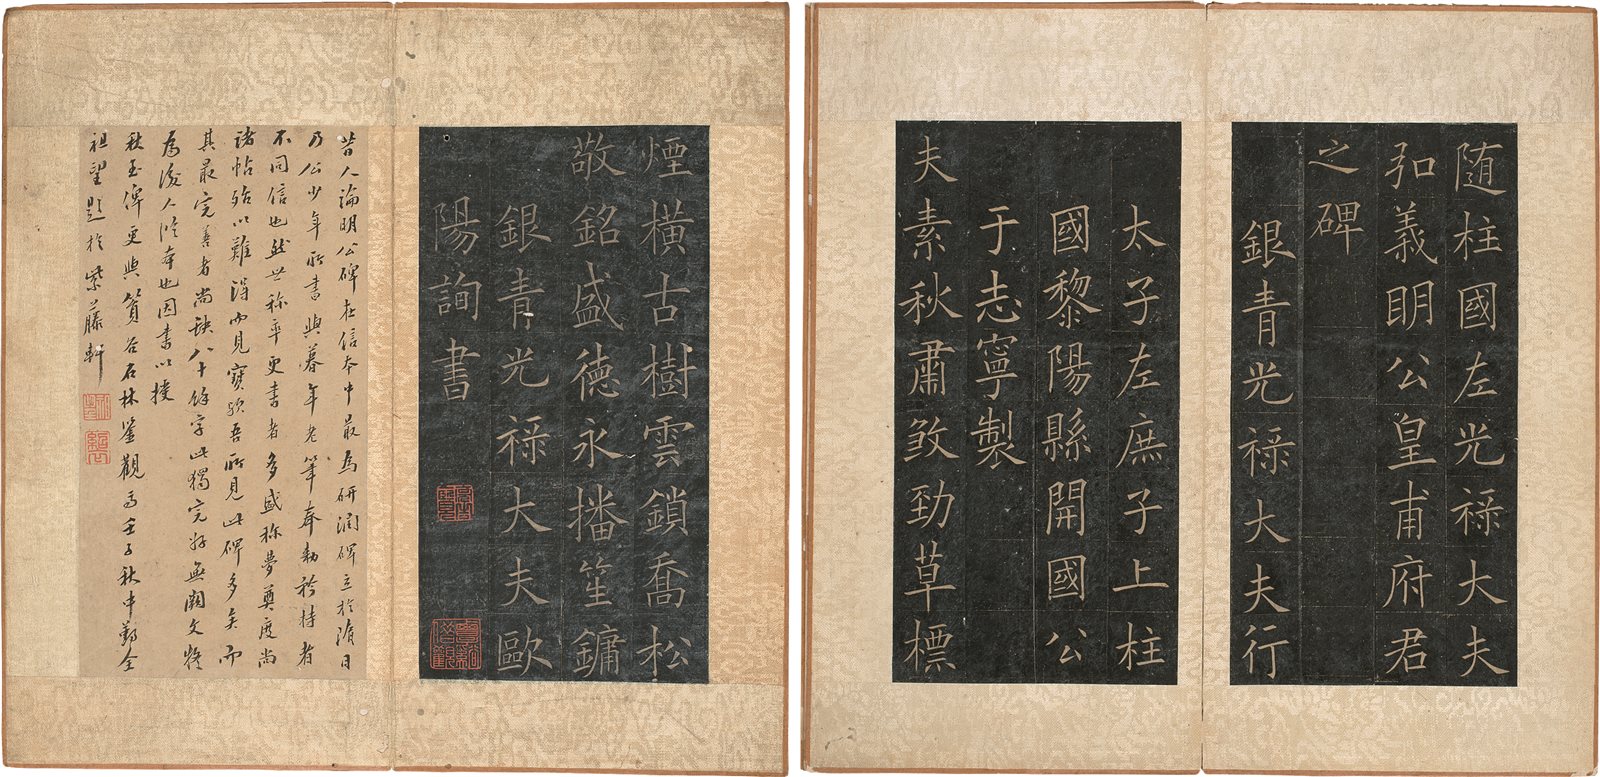 随柱國左光祿大夫
弘義明公皇甫府君
之碑
銀青光祿大夫行
太子左庶子上柱
國黎陽縣開國公
于志寧製
夫素秋肅煞勁草標
煙橫古樹雲鎖喬松
敬銘盛德永播笙鏞
銀青光祿大夫歐
陽詢書
昔人論明公碑在信本中最為研潤碑立於隋日
乃公少年所書與暮年老筆奉勅矜持者
不同信也然世称率更書者多盛称夢奠度尚
諸帖殆以難得而見寶歟吾所見此碑多矣而
其最完善者尚缺八十餘字此獨完好無闕文
為後人臨本也因書以
秋玉倳更與質谷石林鑒觀焉壬子秋中鄞全
祖望題於紫藤軒